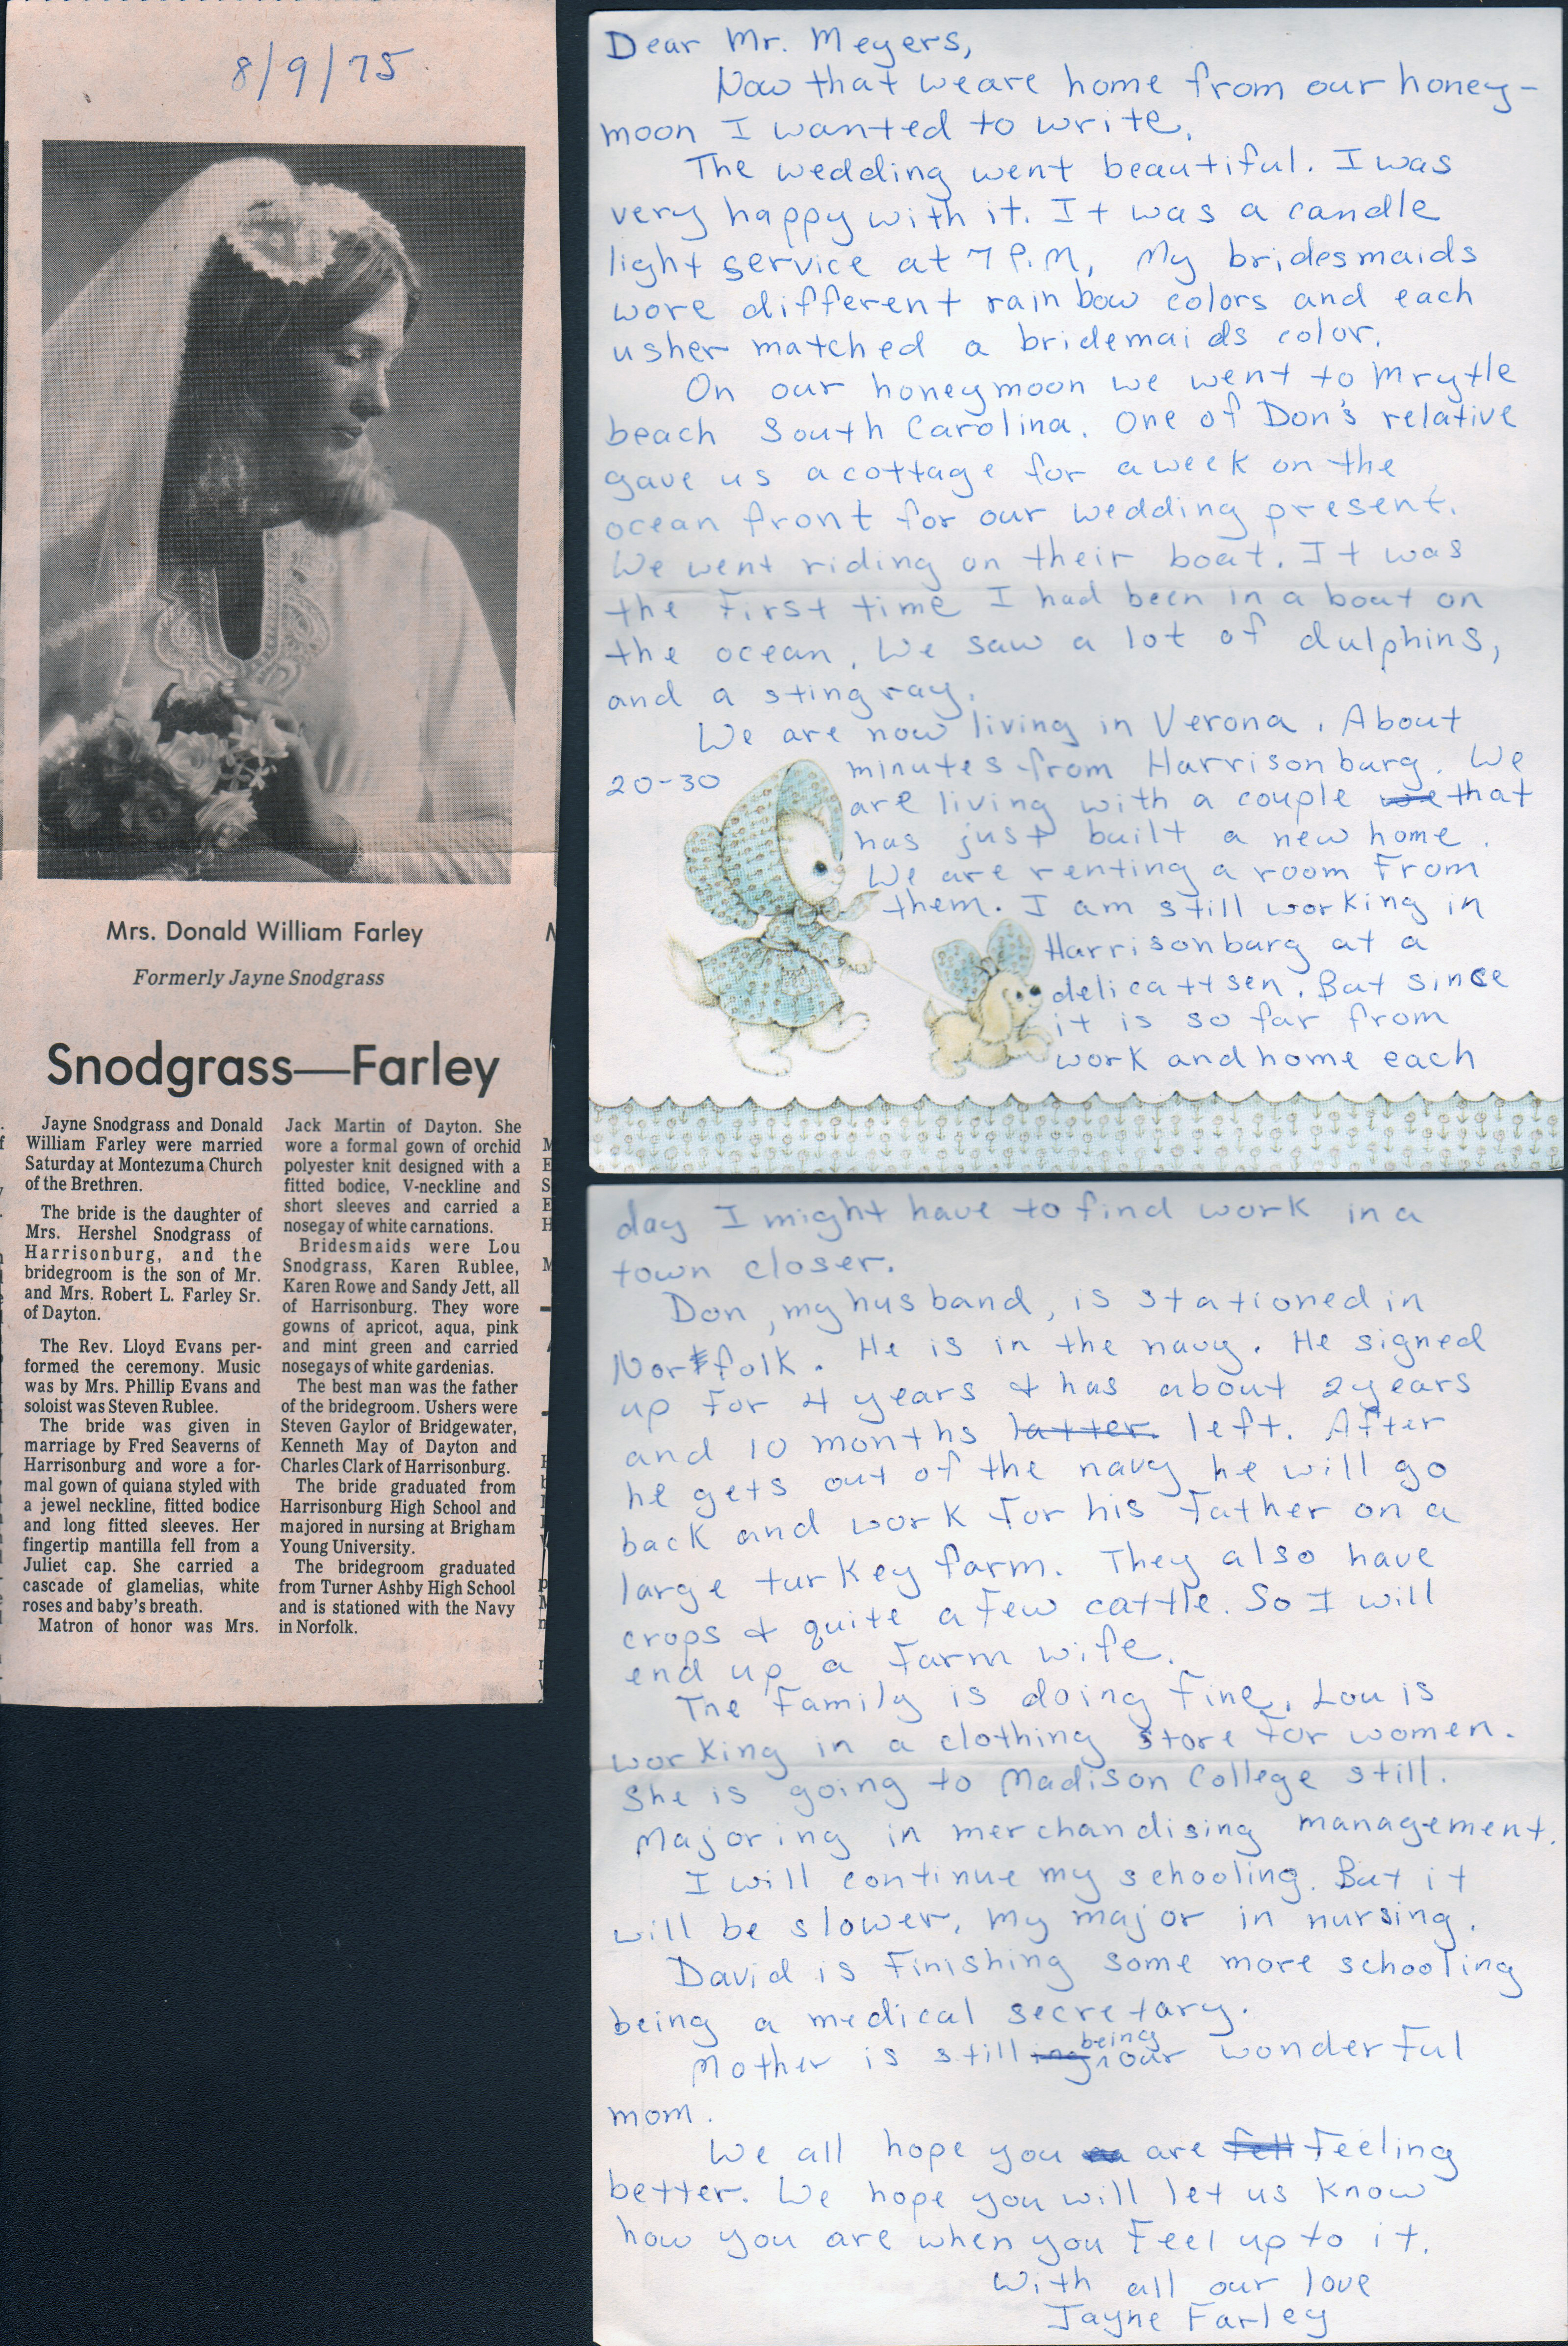 8/9/75
Mrs. Donald William Farley
Formerly Jayne Snodgrass
Snodgrass—Farley
Jayne Snodgrass and Donald
William Farley were married
Saturday at Montezuma Church
of the Brethren.
The bride is the daughter of
Mrs. Hershel Snodgrass of
Harrisonburg, and the
bridegroom is the son of Mr.
and Mrs. Robert L. Farley Sr.
of Dayton.
The Rev. Lloyd Evans per-
formed the ceremony. Music
was by Mrs. Phillip Evans and
soloist was Steven Rublee.
The bride was given in
marriage by Fred Seaverns of
Harrisonburg and wore a for-
mal gown of quiana styled with
a jewel neckline, fitted bodice
and long fitted sleeves. Her
fingertip mantilla fell from a
Juliet cap. She carried a
cascade of glamelias, white
roses and baby's breath.
Matron of honor was Mrs.
Jack Martin of Dayton. She
wore a formal gown of orchid
polyester knit designed with a
fitted bodice, V-neckline and
short sleeves and carried a
nosegay of white carnations.
Bridesmaids were Lou
Snodgrass, Karen Rublee,
Karen Rowe and Sandy Jett, all
of Harrisonburg. They wore
gowns of apricot, aqua, pink
and mint green and carried
nosegays of white gardenias.
The best man was the father
of the bridegroom. Ushers were
Steven Gaylor of Bridgewater,
Kenneth May of Dayton and
Charles Clark of Harrisonburg.
The bride graduated from
Harrisonburg High School and
majored in nursing at Brigham
Young University.
The bridegroom graduated
from Turner Ashby High School
and is stationed with the Navy
in Norfolk.
Dear Mr. Meyers,
Now that we are home from our honey-
moon I wanted to write.
The wedding went beautiful. I was
very happy with it. It was a candle
light service at 7 P.M, My bridesmaids
wore different rainbow colors and each
usher matched a bridemaids color.
On our honeymoon we went to Mrytle
beach South Carolina. One of Don's relative
gave us a cottage for a week on the
ocean front for our wedding present.
We went riding on their boat. It was
the first time I had been in a boat on
the ocean. We saw a lot of dulphins,
and a sting ray.
We are now living in Verona. About
20-30 minutes from Harrisonburg. We
are living with a couple we that
has just built a new home.
We are renting a room from
them. I am still working in
Harrisonburg at a
delicattsen. But since
it is so far from
work and home each
day I might have to find work in a
town closer.
Don, my husband, is stationed in
Norfolk. He is in the navy. He signed
up for 4 years & has about 2 years
and 10 months latter left. After
he gets out of the navy he will go
back and work for his father on a
large turkey farm. They also have
crops & quite a few cattle. So I will
end up a farm wife.
The family is doing fine. Lou is
working in a clothing store for women.
She is going to Madison College still.
Majoring in merchandising management.
I will continue my schooling. But it
will be slower. My major in nursing.
David is finishing some more schooling
being a medical secretary.
Mother is still ing being our wonderful
mom.
We all hope you are fell feeling
better. We hope you will let us know
how you are when you feel up to it.
With all our love
Jayne Farley